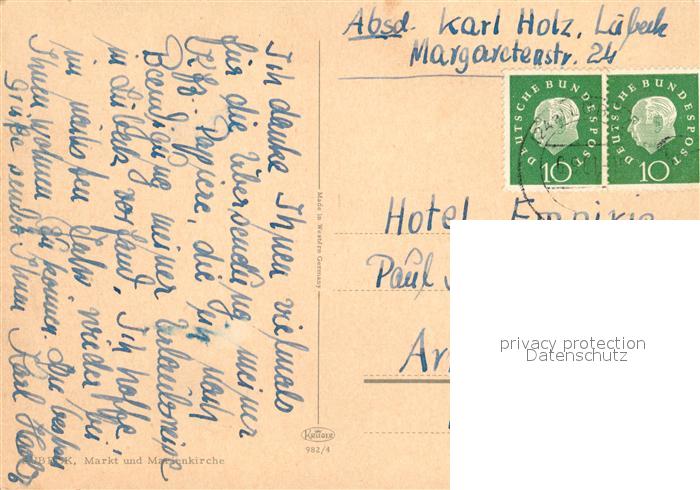 Absd. Karl Holz, Lübeck
Margaretenstr. 24
DEUTSCHE BUNDESPOST
10
DEUTSCHE BUNDESPOST
10
Ich danke Ihnen vielmals
für die Übersendung meiner
Papiere, die ich nach
Beendigung meiner Urlaubsreise
in Lübeck vorfand. Ich hoffe,
im nächsten Jahr wieder bei
Ihnen wohnen zu können. Die besten
Grüße sendet Ihnen Karl Holz
Made in Western Germany
Hotel Empirie
Paul
Ar
privacy protection
Datenschutz
Krüger
982/4
LÜBECK, Markt und Marienkirche